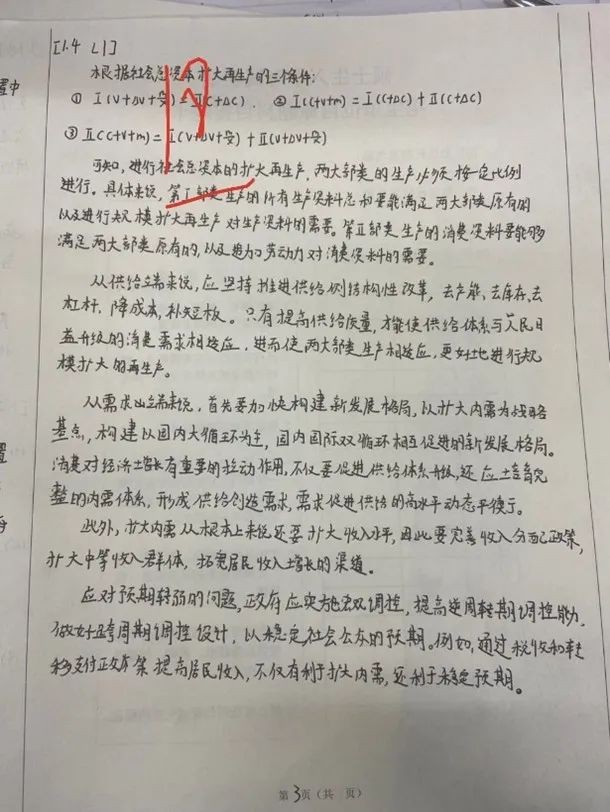 [1.4 L1]
根据社会总资本扩大再生产的三个条件:
① I(V+ΔV+m/x)=II(C+ΔC). ② I(C+V+m)=I(C+ΔC)+II(C+ΔC)
③ II(C+V+m)=I(V+ΔV+m/x)+II(V+ΔV+m/x)
可知,进行社会总资本的扩大再生产,两大部类的生产必须按一定比例
进行。具体来说,第I部类生产的所有生产资料总和要能满足两大部类原有的
以及进行规模扩大再生产对生产资料的需要。第II部类生产的消费资料要能够
满足两大部类原有的,以及追加劳动力对消费资料的需要。
从供给端来说,应坚持推进供给侧结构性改革,去产能、去库存、去
杠杆、降成本,补短板。只有提高供给质量,才能使供给体系与人民日
益升级的消费需求相适应,进而使两大部类生产相适应,更好地进行规
模扩大的再生产。
从需求端来说,首先要加快构建新发展格局,以扩大内需为战略
基点,构建以国内大循环为主,国内国际双循环相互促进的新发展格局。
消费对经济增长有重要的拉动作用,不仅要促进供给体系升级,还应培育完
整的内需体系,形成供给创造需求,需求促进供给的高水平动态平衡。
此外,扩大内需从根本上来说还要扩大收入水平,因此要完善收入分配政策,
扩大中等收入群体,拓宽居民收入增长的渠道。
应对预期转弱的问题,政府应实施宏观调控,提高逆周转期调控能力,
做好跨周期调控设计,以稳定社会公众的预期。例如,通过税收和转
移支付政策提高居民收入,不仅有利于扩大内需,还利于稳定预期。
第3页(共 页)